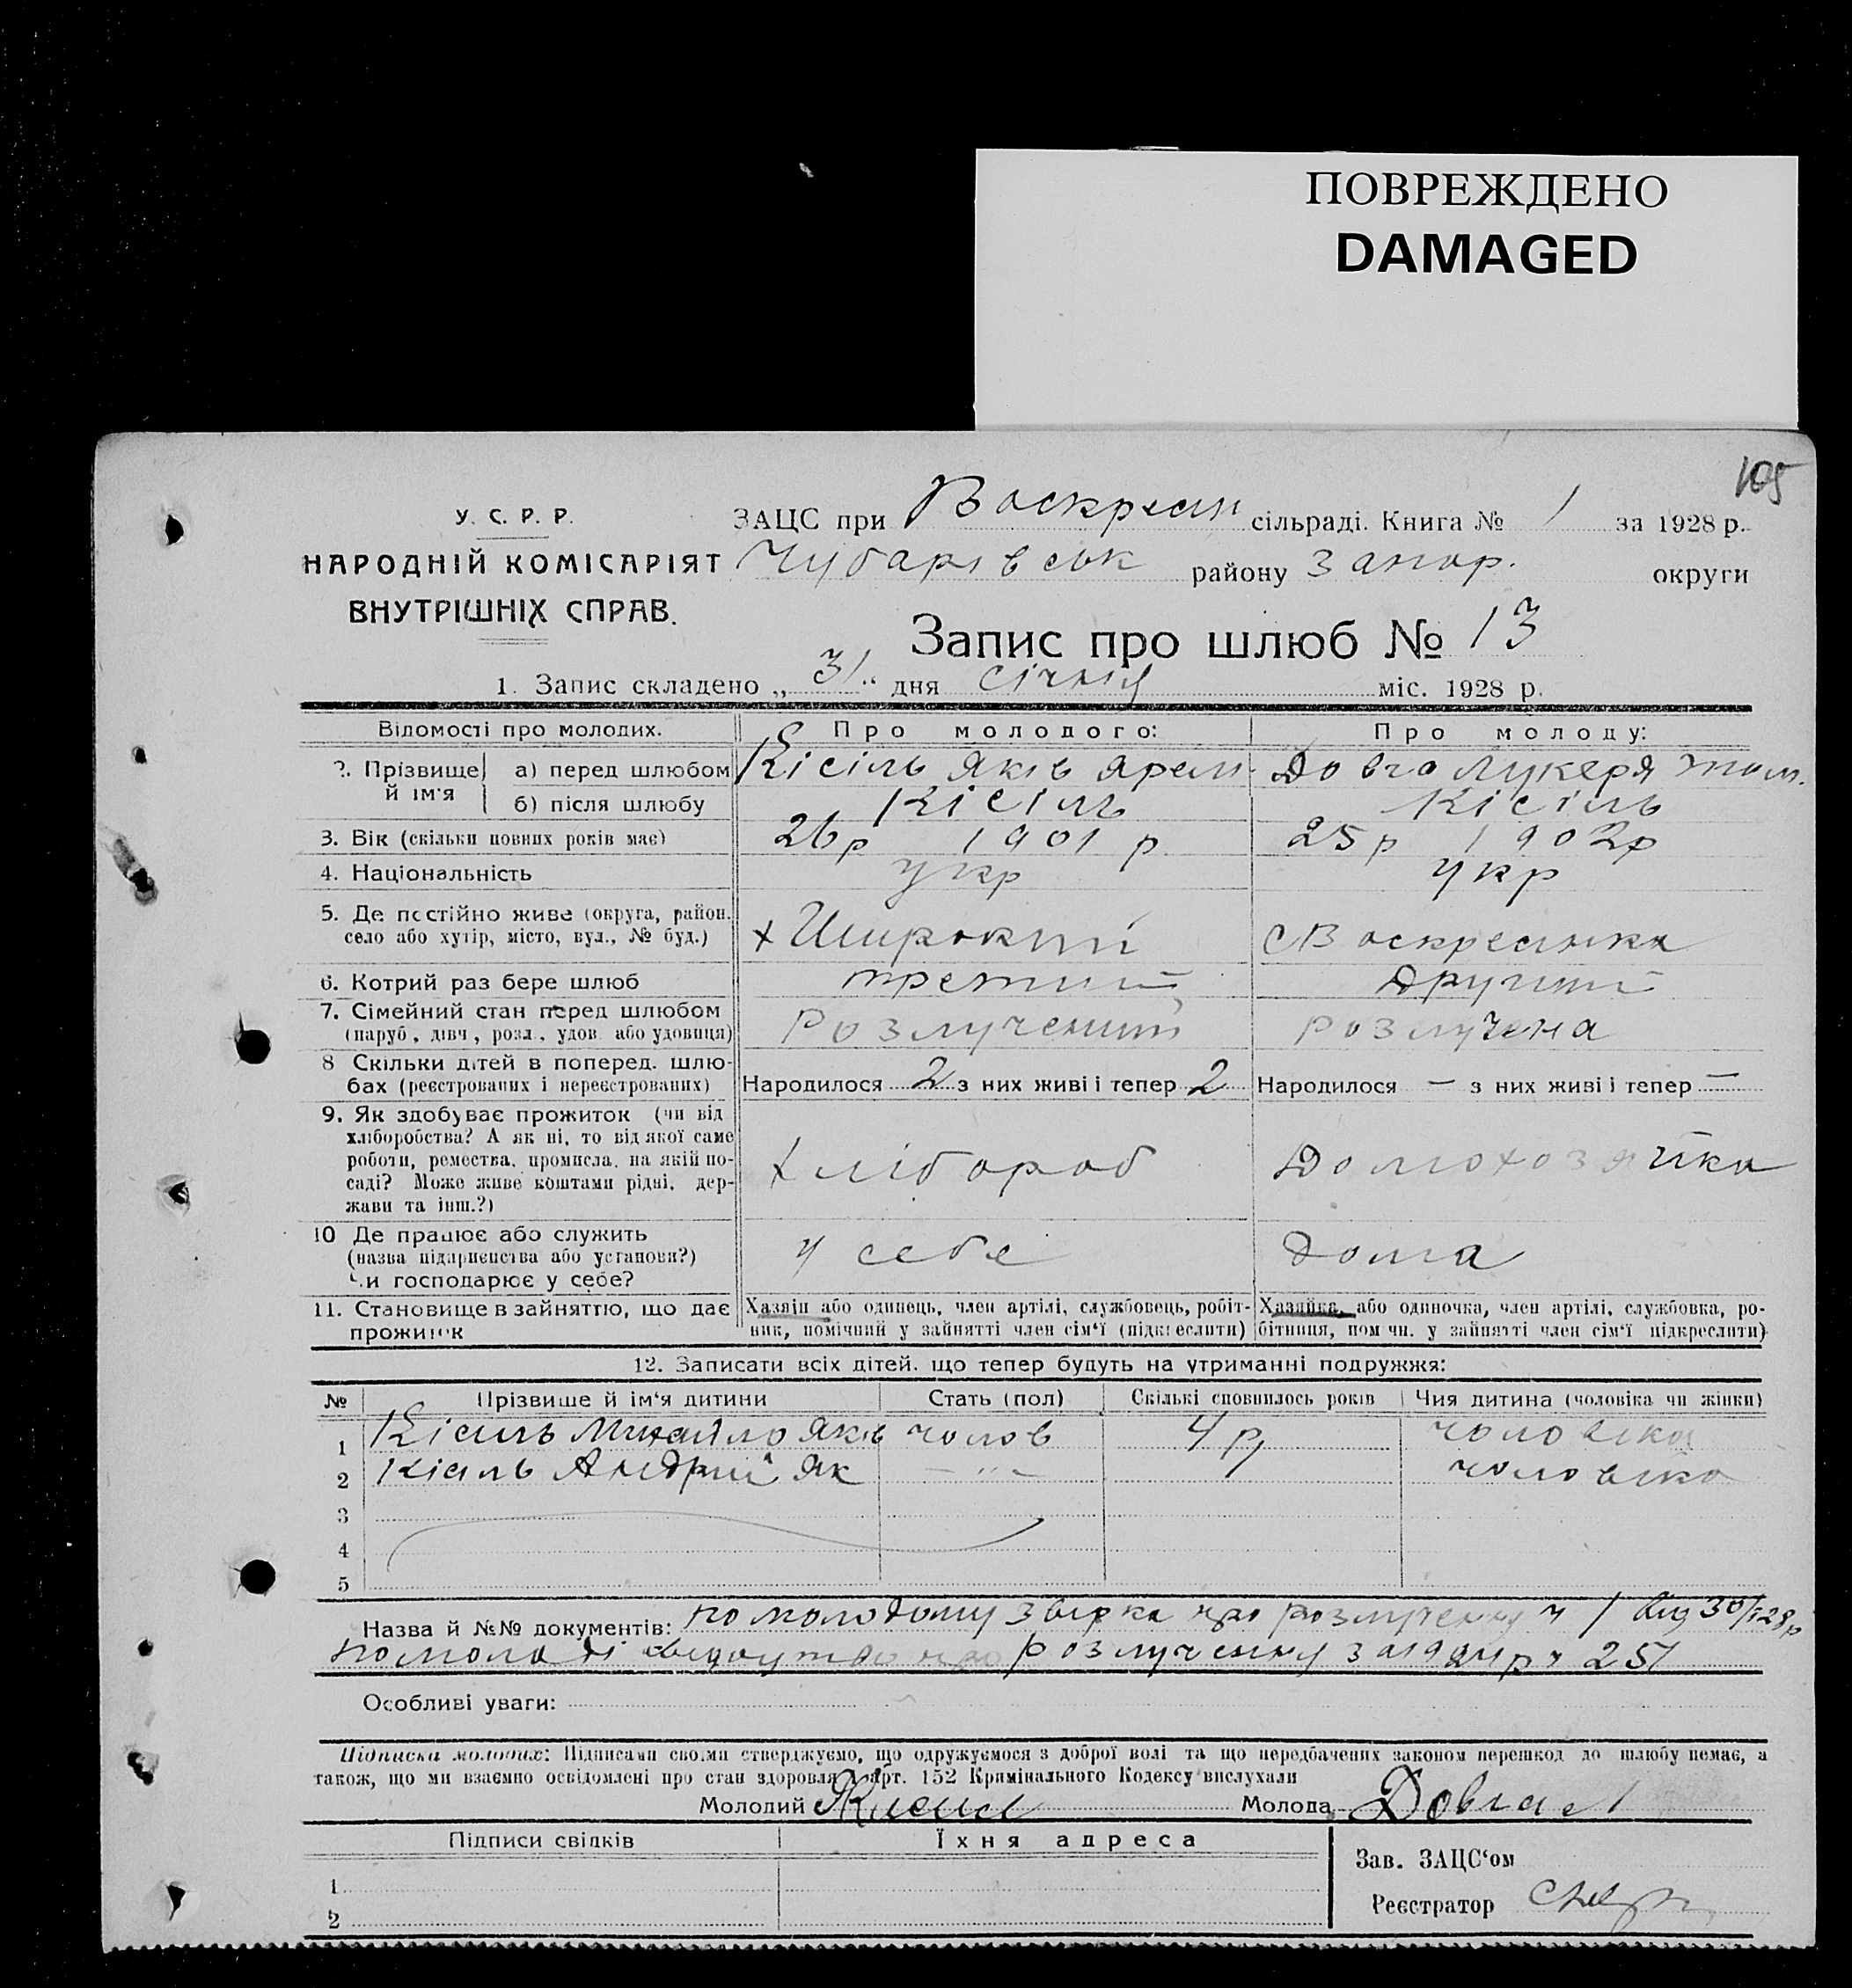 ПОВРЕЖДЕНО
DAMAGED
105
У. С. Р. Р.
НАРОДНІЙ КОМІСАРІЯТ
ВНУТРІШНІХ СПРАВ.
ЗАЦС при Воскресен сільраді. Книга № 1 за 1928 р.
Чубарівськ району Запор. округи
Запис про шлюб № 13
1. Запис складено „31“ дня січня міс. 1928 р.
Відомості про молодих. Про молодого: Про молоду:
2. Прізвище й ім'я а) перед шлюбом Кісіль Яків Ярем. Довга Лукеря Том.
б) після шлюбу Кісіль Кісіль
3. Вік (скільки повних років має) 26 р 1901 р 25 р 1902 р
4. Національність укр укр
5. Де постійно живе (округа, район,
село або хутір, місто, вул., № буд.) х Широкий с Воскресенка
6. Котрий раз бере шлюб третий другий
7. Сімейний стан перед шлюбом
(паруб., дівч., розл., удов. або удовиця) Розлучений розлучена
8 Скільки дітей в поперед. шлю-
бах (реєстрованих і нереєстрованих) Народилося 2 з них живі і тепер 2 Народилося — з них живі і тепер —
9. Як здобуває прожиток (чи від
хліборобства? А як ні, то від якої саме
роботи, ремества, промисла, на якій по-
саді? Може живе коштами рідні, дер-
жави та інш.?) хлібороб Домохозяйка
10 Де працює або служить
(назва підприємства або установи?)
Чи господарює у себе? у себе дома
11. Становище в зайняттю, що дає
прожиток
Хазяін або одинець, член артілі, службовець, робіт-
ник, помічний у зайнятті член сім‘ї (підкреслити)
Хазяйка, або одиночка, член артілі, службовка, ро-
бітниця, помічн. у зайнятті член сім‘ї підкреслити)
12. Записати всіх дітей, що тепер будуть на утриманні подружжя:
№ Прізвище й ім‘я дитини Стать (пол) Скількі сповнилось років Чия дитина (чоловіка чи жінки)
1 Кісиль Михайло Яків чолов 4 р чоловіка
2 Кісиль Андрий Як — " — чоловіка
3
4
5
Назва й №№ документів: по молодому звірка про розлученну ч 1 від 30/I 28 р
по молоді про розлученну за 1924 р ч 251
Особливі уваги:
Підписка молодих: Підписами своїми стверджуємо, що одружуємося з доброї волі та що передбачених законом перешкод до шлюбу немає, а
також, що ми взаємно освідомлені про стан здоровля й арт. 152 Кримінального Кодексу вислухали
Молодий Молода Довгая
Підписи свідків Їхня адреса
Зав. ЗАЦС‘ом
1
Реєстратор
2